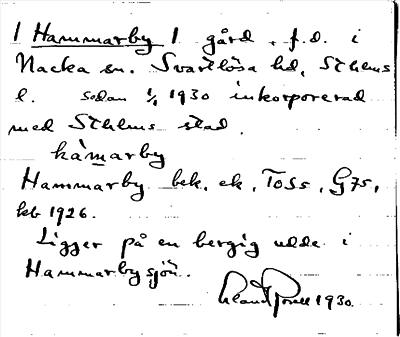 1 Hammarby 1 gård, f.d. i
Nacka sn. Svartlösa hd, Sthlms
l. sedan 1/1 1930 inkorporerad
med Sthlms stad.
hàmarby
Hammarby bek. ek, ToSs, G75,
kb 1926.
Ligger på en bergig udde i
Hammarbysjön.
1930.